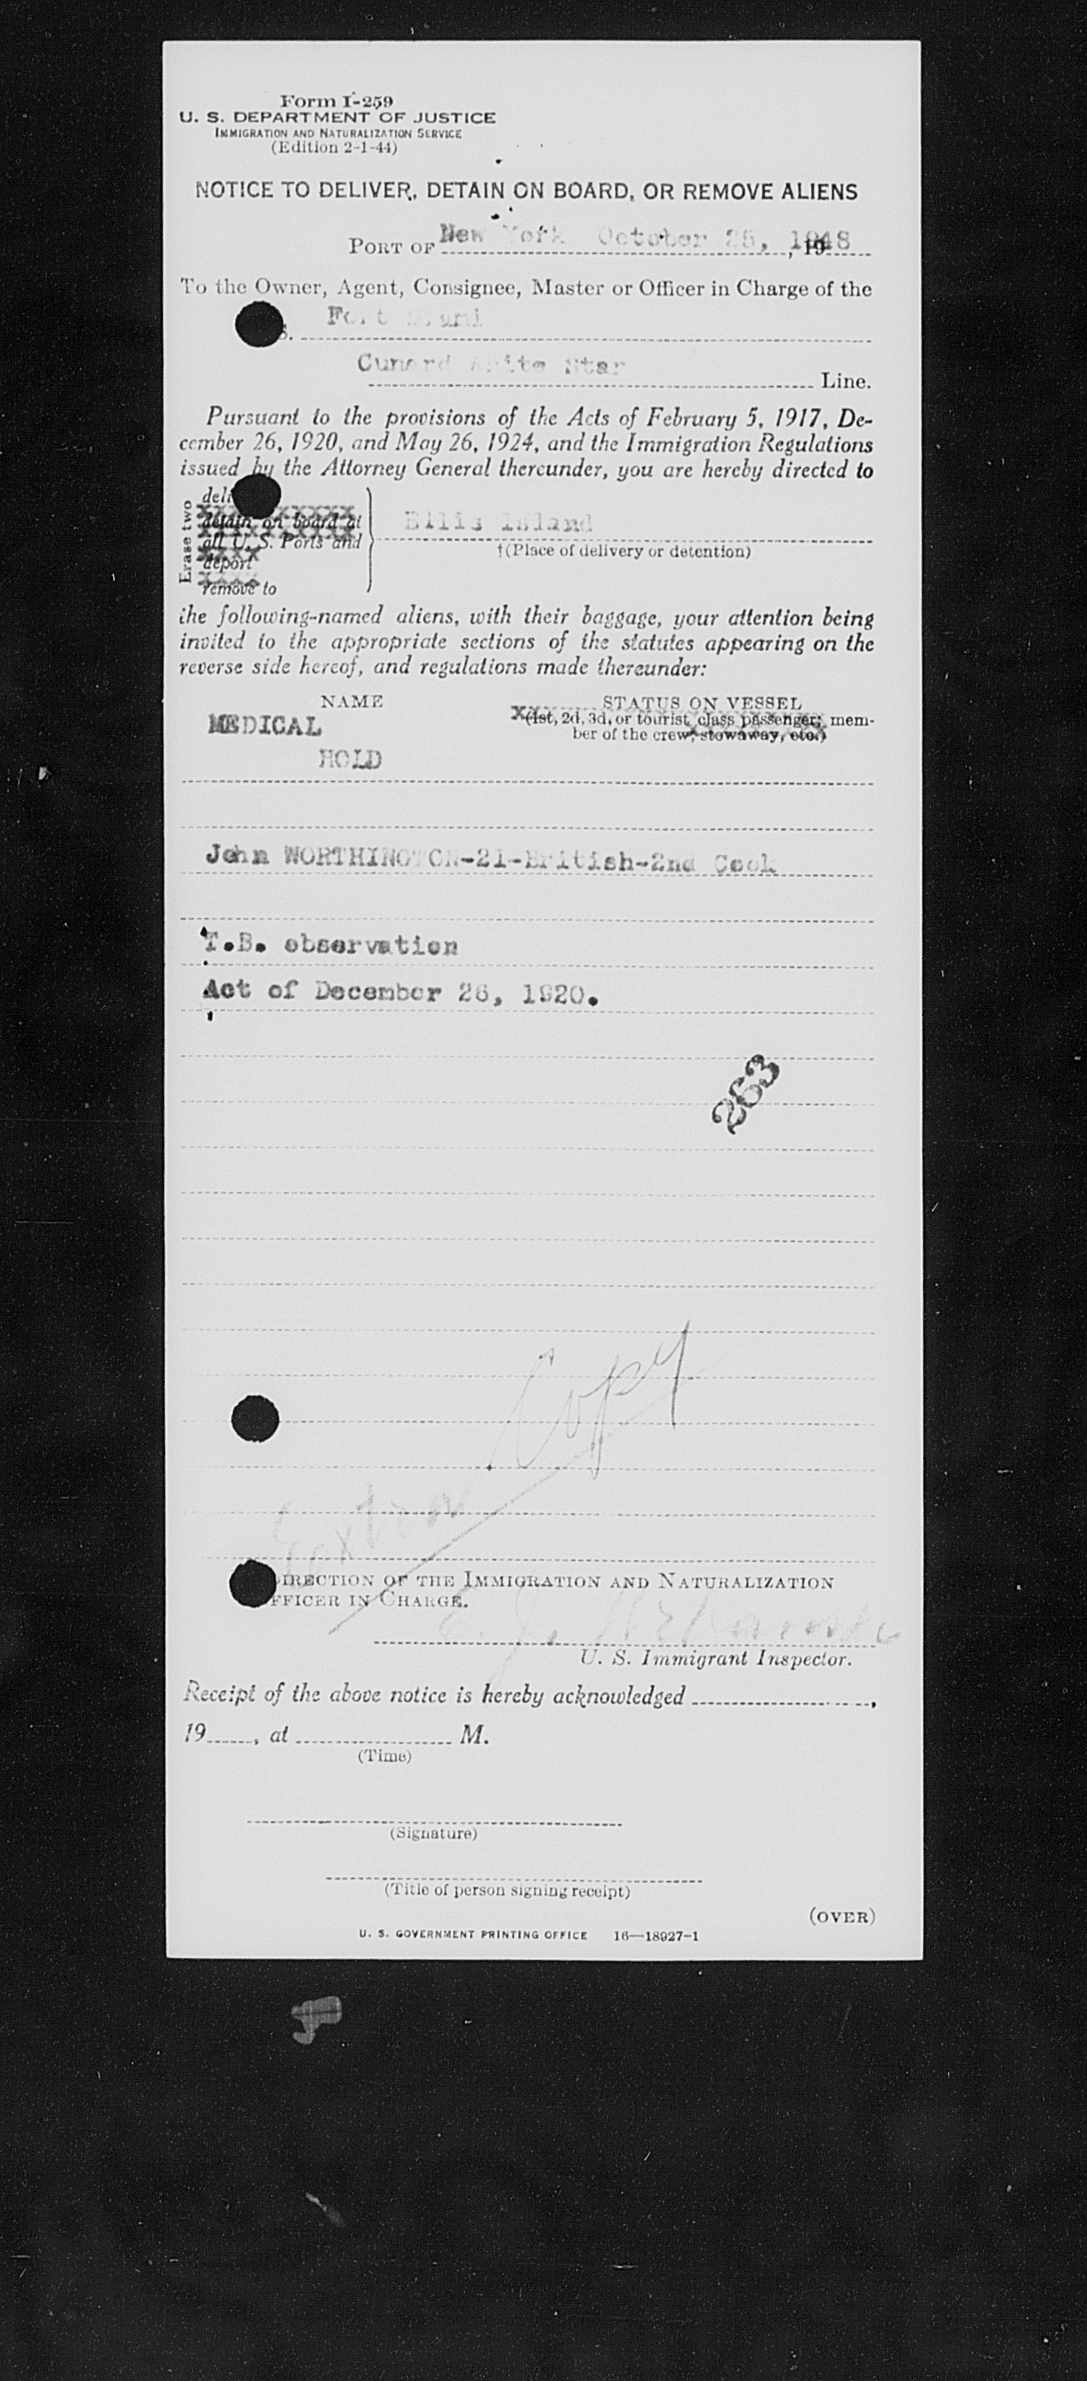 Form I-259
U. S. DEPARTMENT OF JUSTICE
IMMIGRATION AND NATURALIZATION SERVICE
(Edition 2-1-44)
NOTICE TO DELIVER, DETAIN ON BOARD, OR REMOVE ALIENS
PORT OF New York October 25, 1948
To the Owner, Agent, Consignee, Master or Officer in Charge of the
S. Fort
Cunard White Star Line.
Pursuant to the provisions of the Acts of February 5, 1917, De-
cember 26, 1920, and May 26, 1924, and the Immigration Regulations
issued by the Attorney General thereunder, you are hereby directed to
Erase two
deli
detain on board at
all U. S. Ports and
deport
remove to
Ellis Island
†(Place of delivery or detention)
the following-named aliens, with their baggage, your attention being
invited to the appropriate sections of the statutes appearing on the
reverse side hereof, and regulations made thereunder:
NAME STATUS ON VESSEL
(1st, 2d, 3d, or tourist class passenger; mem-
ber of the crew, stowaway, etc.)
MEDICAL
HOLD
John WORTHINGTON-21-British-2nd Cook
T.B. observation
Act of December 26, 1920.
263
Copy
DIRECTION OF THE IMMIGRATION AND NATURALIZATION
FFICER IN CHARGE.
U. S. Immigrant Inspector.
Receipt of the above notice is hereby acknowledged ,
19 , at M.
(Time)
(Signature)
(Title of person signing receipt)
(OVER)
U. S. GOVERNMENT PRINTING OFFICE 16—18927-1